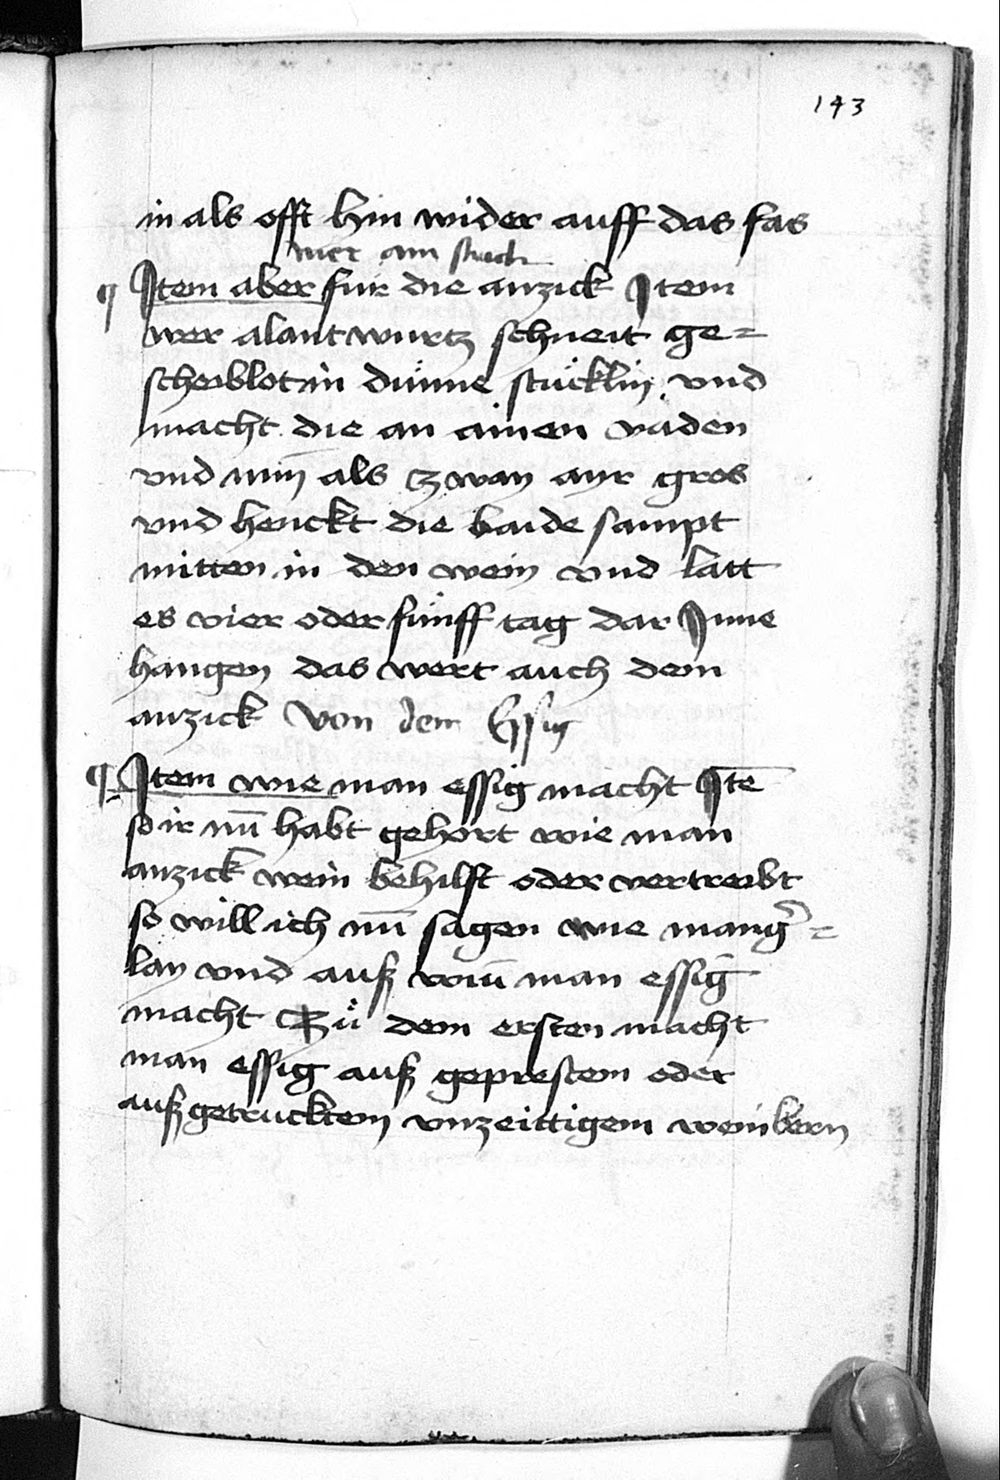 143
in als offt hin wider auff das fas
mer ain stuch
¶ Item aber für die anzick Item
wer alantwurtz schneit ge=
scheiblot in dünne stücklin vnd
macht die an ainen väden
vnd nim̄ als zway ayr gros
vnd henckt die baide sampt
mitten in den wein vnd latt
es vier oder fünff tag dar Inne
hangen das wert auch dem
anzick Von dem Essig
¶ Item wie man essig macht Itē
so ir nū habt gehört wie man
anzick wein behilft oder vertreibt
so will ich nū sagen wie mang̛=
lay vnd auß wiū man essig
macht Zů dem ersten macht
man essig auß geprestem oder
außgetrucktem vnzeittigem weinbern